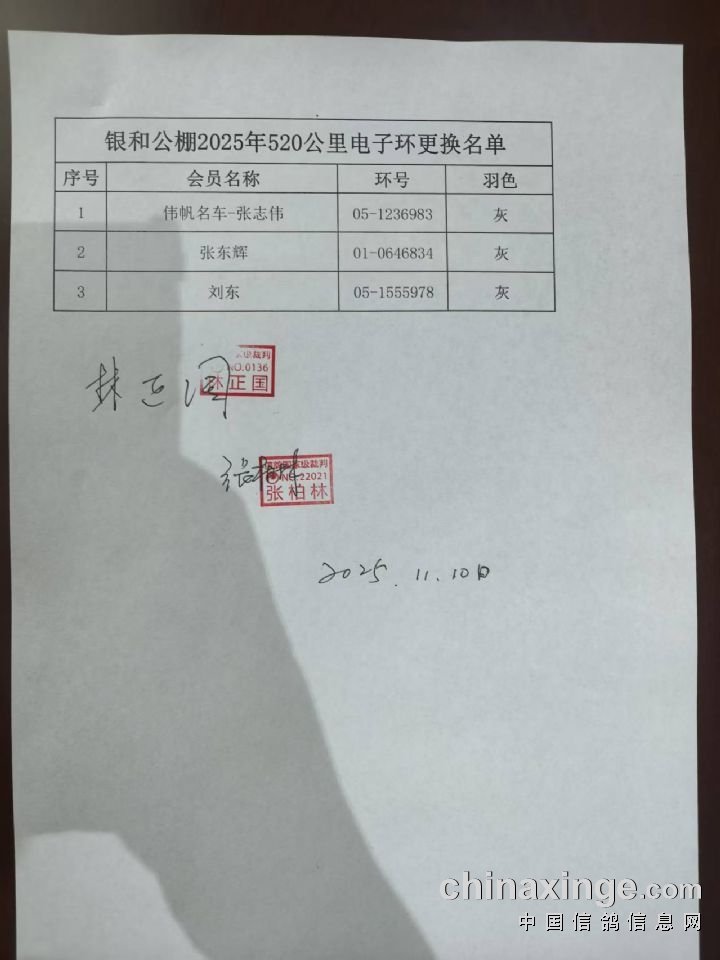 银和公棚2025年520公里电子环更换名单
序号 会员名称 环号 羽色
1 伟帆名车-张志伟 05-1236983 灰
2 张东辉 01-0646834 灰
3 刘东 05-1555978 灰
级裁判
NO.0136
林正国
林正国
级裁判
NO.22021
张柏林
张柏林
2025.11.10日
chinaxinge.com
中国信鸽信息网